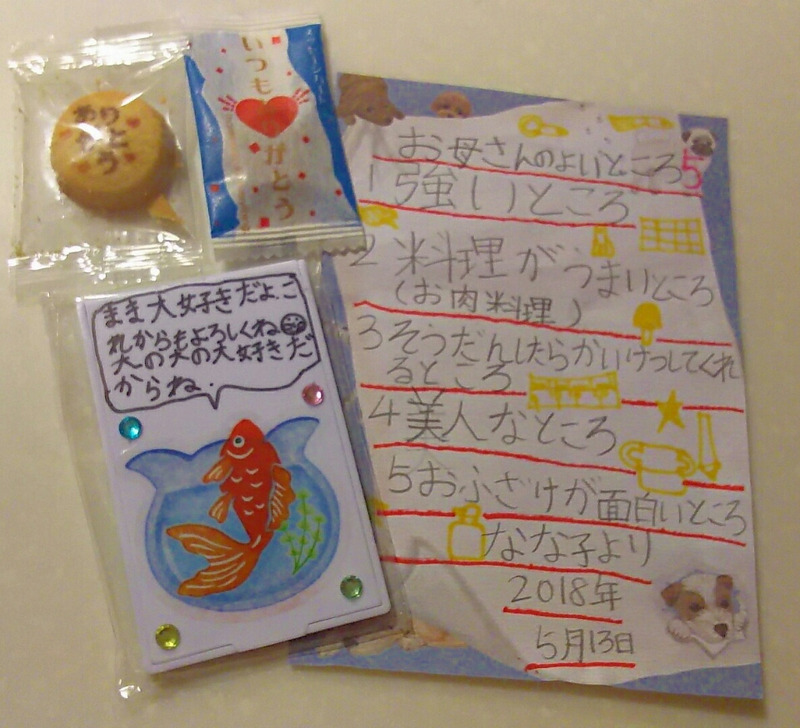 ありがとう
いつもありがとう
まま大好きだよ。こ
れからもよろしくね
大の大の大好きだ
からね.
お母さんのよいところ5
1 強いところ
2 料理がうまいところ
(お肉料理)
3 そうだんしたらかいけつしてくれ
るところ
4 美人なところ
5 おふざけが面白いところ
なな子より
2018年
5月13日